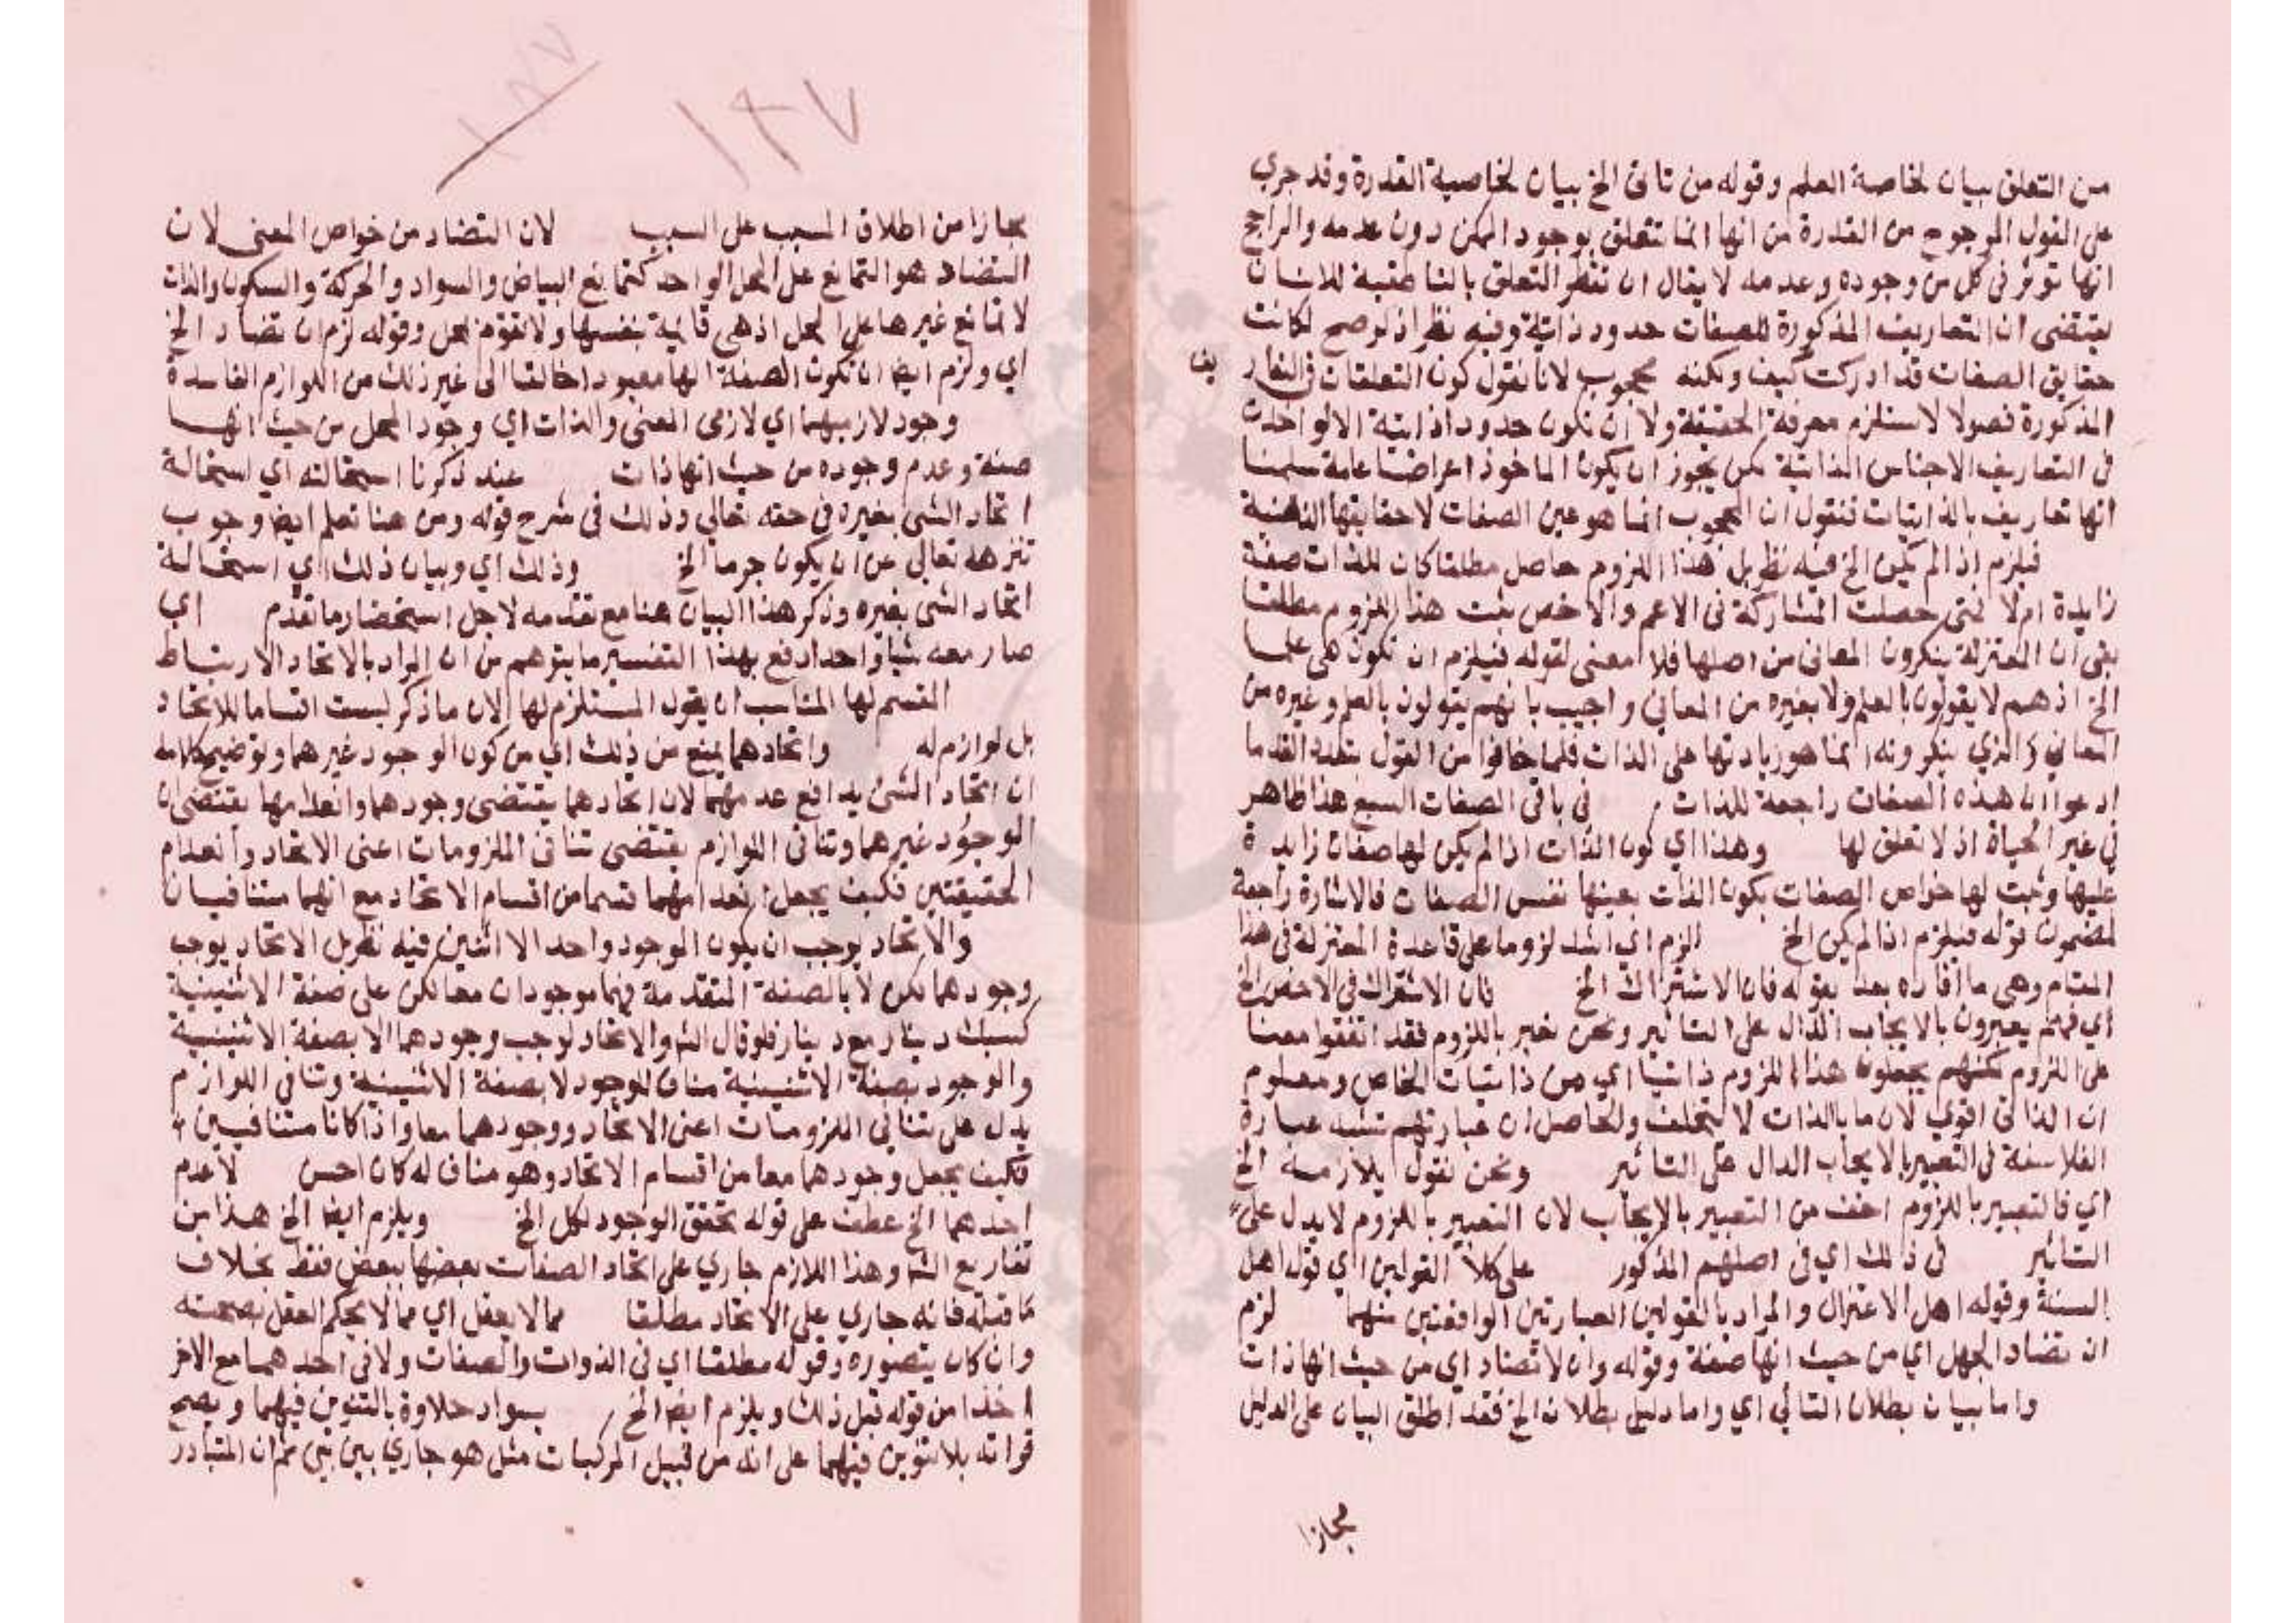 من التعلق بيان لخاصة العلم وقوله من تاتى الخ بيان لخاصية القدرة وقد جرى
على القول المرجوح من القدرة من انها انما تتعلق بوجود الممكن دون عدمه والراجح
انها توثر فى كل من وجوده وعدمه لا يقال ان نظر التعلق بالناطقية للانسان
يقتضى ان التعاريف المذكورة للصفات حدود ذاتية وفيه نظر اذ لو صح لكانت
حقايق الصفات قد ادركت كيف وكنه محجوب لانا نقول كون التعلقات فى التعاريف
المذكورة فصولا لا يستلزم معرفة الحقيقة ولا ان تكون حدودا ذاتية الا لو اخذت
فى التعاريف الاجناس الذاتية لكن يجوز ان يكون الماخوذ اعراضا عامة سلمنا
انها تعاريف بالذاتيات فنقول ان المحجوب انما هو عين الصفات لا حقايقها الذهنية
فيلزم اذ الم يكن الخ فيه نظر بل هذا اللزوم حاصل مطلقا كان للذات صفة
زايدة ام لا فمتى حصلت المشاركة فى الاعم والاخص ثبت هذا اللزوم مطلقا
بقى ان المعتزلة ينكرون المعانى من اصلها فلا معنى لقوله فيلزم ان تكون هى علما
الخ اذ هم لا يقولون بالعلم ولا بغيره من المعاني واجيب بانهم يقولون بالعلم وغيره من
المعاني والذي ينكرونه انما هو زيادتها على الذات فلما خافوا من القول بتعدد القدما
ادعوا ان هذه الصفات راجعة للذات فى باقى الصفات السبع هذا ظاهر
في غير الحياة اذ لا تعلق لها وهذا اي كون الذات اذا لم يكن لها صفات زايدة
عليها وثبت لها خواص الصفات بكون الذات بعينها نفس الصفات فالاشارة راجعة
لمضمون قوله فيلزم اذا لم يكن الخ الزم اي اشد لزوما على قاعدة المعتزلة فى هذا
المقام وهى ما افاده بعد بقوله فان الاشتراك الخ فان الاشتراك فى الاخص الخ
اي فهم يعبرون بالايجاب الدال على التاثير ونحن نخبر باللزوم فقد اتفقوا معنا
على اللزوم لكنهم يجعلون هذا اللزوم ذاتيا اي من ذاتيات الخاص ومعلوم
ان الذاتى اقوي لان ما بالذات لا يتخلف والحاصل ان عبارتهم تشبه عبارة
الفلاسفة فى التعبير بالايجاب الدال على التاثير ونحن نقول بلازمه الخ
اي فالتعبير باللزوم اخف من التعبير بالايجاب لان التعبير باللزوم لا يدل على
التاثير فى ذلك اي فى اصلهم المذكور على كلا القولين اي قول اهل
السنة وقوله اهل الاعتزال والمراد بالقولين العبارتين الواقعتين منهما لزم
ان تضاد الجهل اي من حيث انها صفة وقوله وان لا تضاد اي من حيث انها ذات
واما بيان بطلان التالي اي واما دليل بطلان الخ فقد اطلق البيان على الدليل
مجازا
١٨٧
مجازا من اطلاق المسبب على السبب لان التضاد من خواص المعنى لان
التضاد هو التمانع على المحل الواحد كتمانع البياض والسواد والحركة والسكون والذات
لا تمانع غيرها على المحل اذ هى قائمة بنفسها ولا تقوم بمحل وقوله لزم ان تضاد الخ
اي ولزم ايضا ان تكون الصفة الها معبودا خالقا الى غير ذلك من اللوازم الفاسدة
وجود لازميهما اي لازمى المعنى والذات اي وجود المحل من حيث انها
صفة وعدم وجوده من حيث انها ذات عند ذكرنا استحالته اي استحالة
اتحاد الشى بغيره فى حقه تعالى وذلك فى شرح قوله ومن هنا تعلم ايضا وجوب
تنزهه تعالى عن ان يكون جرما الخ وذلك اي وبيان ذلك اي استحالة
اتحاد الشى بغيره وذكر هذا البيان هنا مع تقدمه لاجل استحضار ما تقدم اي
صار معه شيا واحدا دفع بهذا التفسير ما يتوهم من ان المراد بالاتحاد الارتباط
القسم لها المناسب ان يقول المستلزم لها لان ما ذكر ليست اقساما للاتحاد
بل لوازم له واتحادهما يمنع من ذلك اي من كون الوجود غيرهما وتوضيح كلامه
ان اتحاد الشى يدافع عدمهما لان اتحادهما يقتضى وجودهما وانعدامها يقتضى ان
الوجود غيرهما وتنافى اللوازم يقتضى تنافى الملزومات اعنى الاتحاد وانعدام
الحقيقتين فكيف يجعل انعدامهما قسما من اقسام الاتحاد مع انهما متنافيان
والاتحاد يوجب ان يكون الوجود واحد الا اثنين فيه نظر بل الاتحاد يوجب
وجودهما لكن لا بالصفة المتقدمة فهما موجودان معا لكن على صفة الاثنينية
كسبك دينار مع دينار فلو قال الش والاتحاد يوجب وجودهما لا بصفة الاثنينية
والوجود بصفة الاثنينية مناف للوجود لا بصفة الاثنينية وتنافى اللوازم
يدل على تنافي الملزومات اعنى الاتحاد ووجودهما معا واذا كانا متنافيين
فكيف يجعل وجودهما معا من اقسام الاتحاد وهو مناف له كان احسن لا عدم
احدهما الخ عطف على قوله تحقق الوجود لكل الخ ويلزم ايضا الخ هذا من
تفاريع الش وهذا اللازم جاري على اتحاد الصفات بعضها ببعض فقط بخلاف
ما قبله فانه جاري على الاتحاد مطلقا مما لا يعقل اي مما لا يحكم العقل بصحته
وان كان يتصوره وقوله مطلقا اي فى الذوات والصفات ولا فى احدهما مع الاخر
اخذا من قوله قبل ذلك ويلزم ايضا الخ بسواد حلاوة بالتنوين فيهما ويصح
قراته بلا تنوين فيهما على انه من قبيل المركبات مثل هو جاري بين بين ثم ان المتبادر